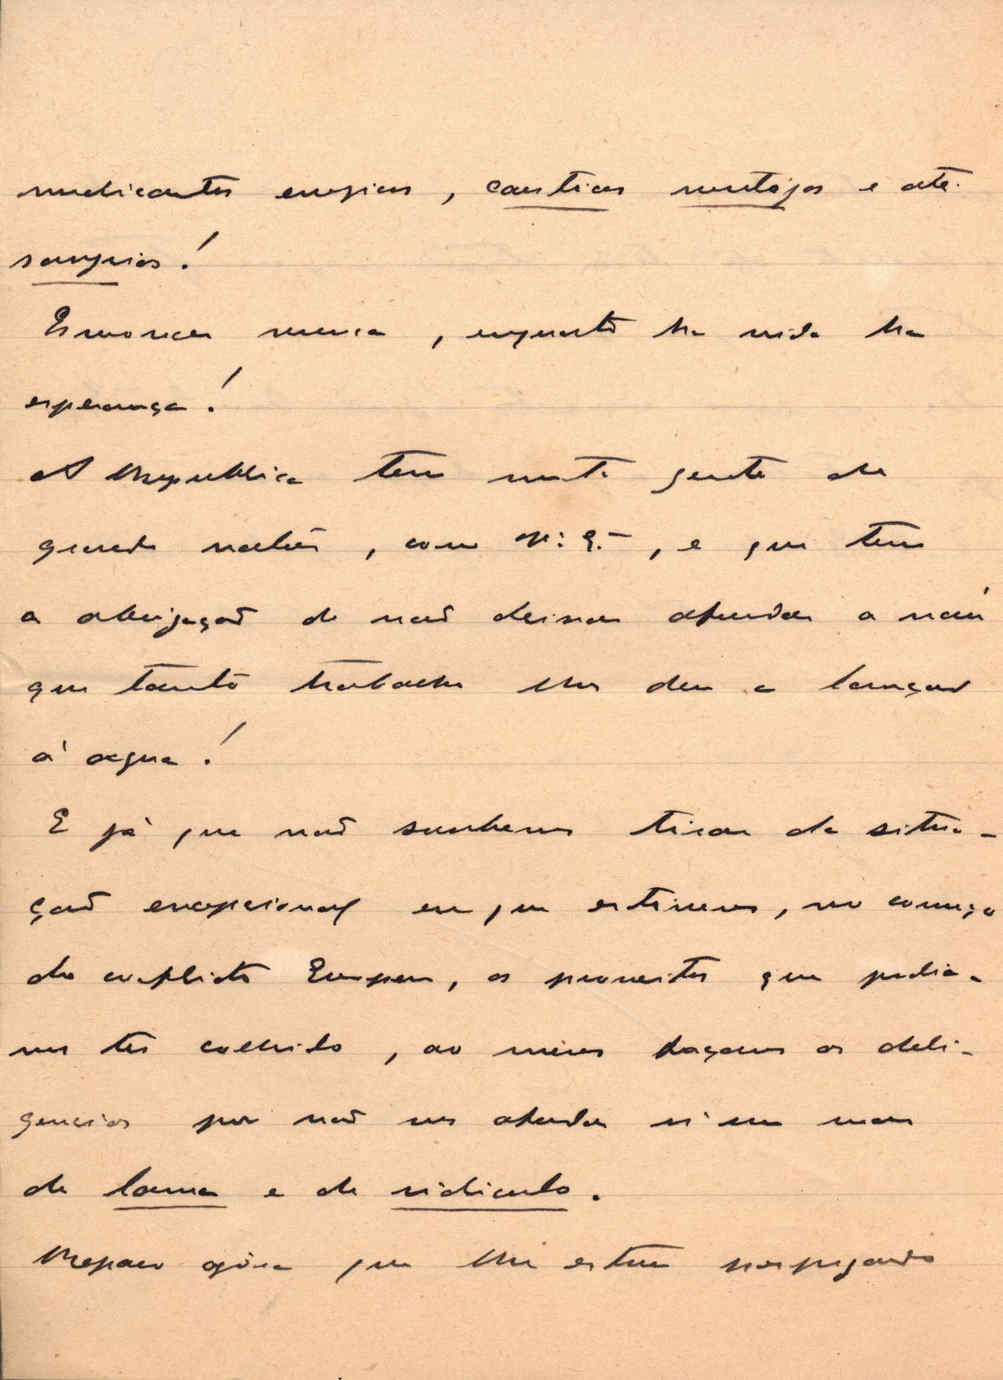 medicantes energicos, causticos ventosas e até
sangrias!
Esmorecer nunca, enquanto ha vida ha
esperança!
A Republica tem muita gente de
grande valôr, como V: Ex.ª, e que tem
a obrigação de não deixar afundar a náu
que tanto trabalho lhes deu a lançar
á agua!
E já que não soubemos tirar da situa-
ção excepcional em que estivemos, no começo
do conflicto Europeu, os proveitos que podia-
mos ter colhido, ao menos façamos as deli-
gencias por não nos afundar n'um mar
de lama e de ridiculo.
Reparo agóra que lhe estou